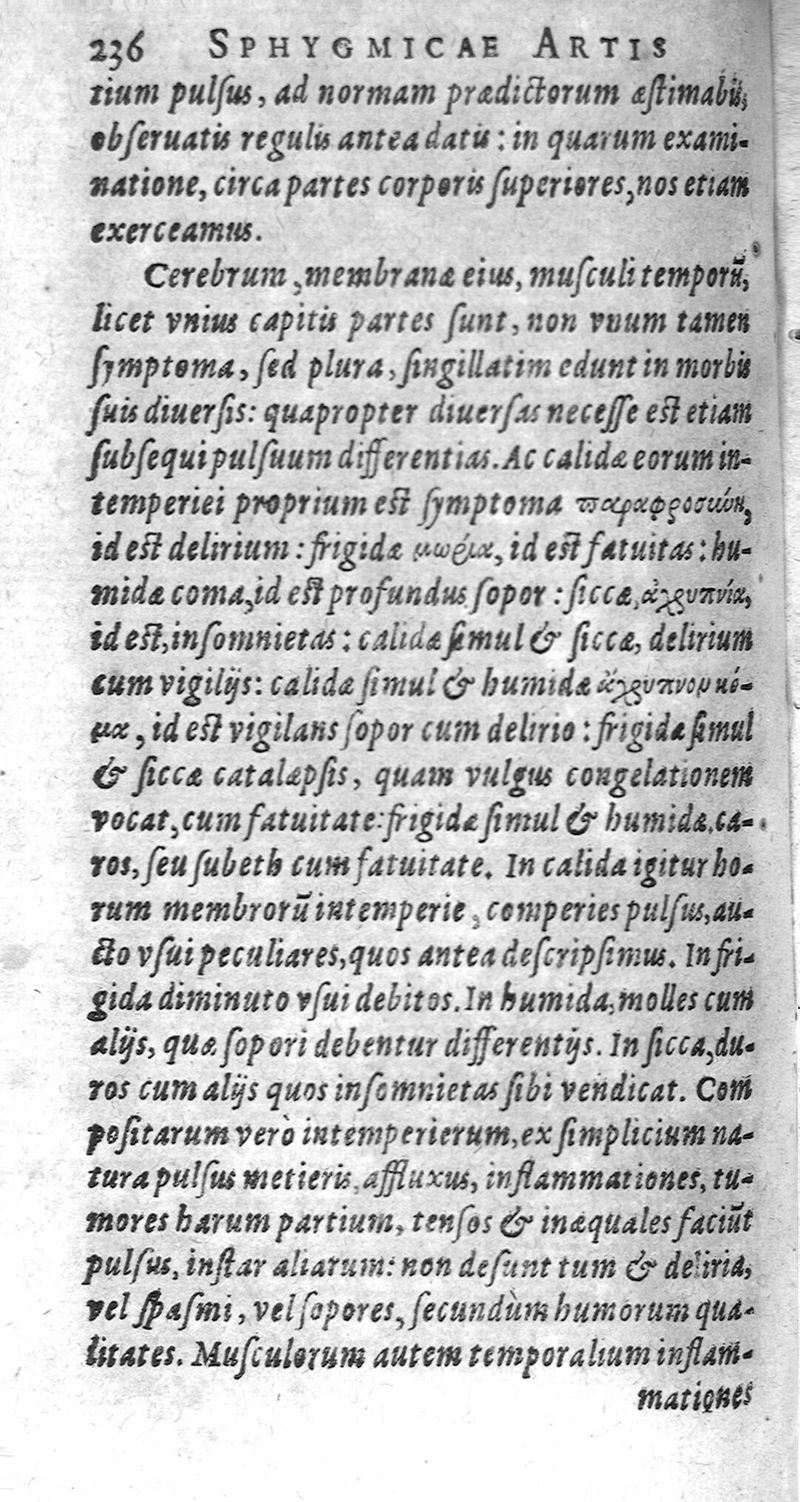 236 SPHYGMICAE ARTIS
tium pulſus, ad normam prædictorum æſtimabis,
obſeruatis regulis antea datis: in quarum exami-
natione, circa partes corporis ſuperiores, nos etiam
exerceamus.
Cerebrum, membranæ eius, muſculi temporū,
licet vnius capitis partes ſunt, non vnum tamen
ſymptoma, ſed plura, ſingillatim edunt in morbis
ſuis diuerſis: quapropter diuerſas neceſſe est etiam
ſubſequi pulſuum differentias. Ac calidæ eorum in-
temperiei proprium est ſymptoma παραφροσιώη,
id est delirium: frigidæ μωρία, id est fatuitas: hu-
midæ coma, id est profundus ſopor: ſiccæ, ἀγρυπνία,
id est, inſomnietas: calidæ ſimul & ſiccæ, delirium
cum vigilijs: calidæ ſimul & humidæ ἀγρυπνον κό-
μα, id est vigilans ſopor cum delirio: frigidæ ſimul
& ſiccæ catalæpſis, quam vulgus congelationem
vocat, cum fatuitate: frigidæ ſimul & humidæ, ca-
ros, ſeu ſubeth cum fatuitate. In calida igitur ho-
rum membrorū intemperie, comperies pulſus, au-
cto vſui peculiares, quos antea deſcripſimus. In fri-
gida diminuto vſui debitos. In humida, molles cum
alijs, quæ ſopori debentur differentijs. In ſicca, du-
ros cum alijs quos inſomnietas ſibi vendicat. Com
poſitarum verò intemperierum, ex ſimplicium na-
tura pulſus metieris, affluxus, inflammationes, tu-
mores harum partium, tenſos & inæquales faciūt
pulſus, inſtar aliarum: non deſunt tum & deliria,
vel ſpaſmi, vel ſopores, ſecundùm humorum qua-
litates. Muſculorum autem temporalium inflam-
mationes